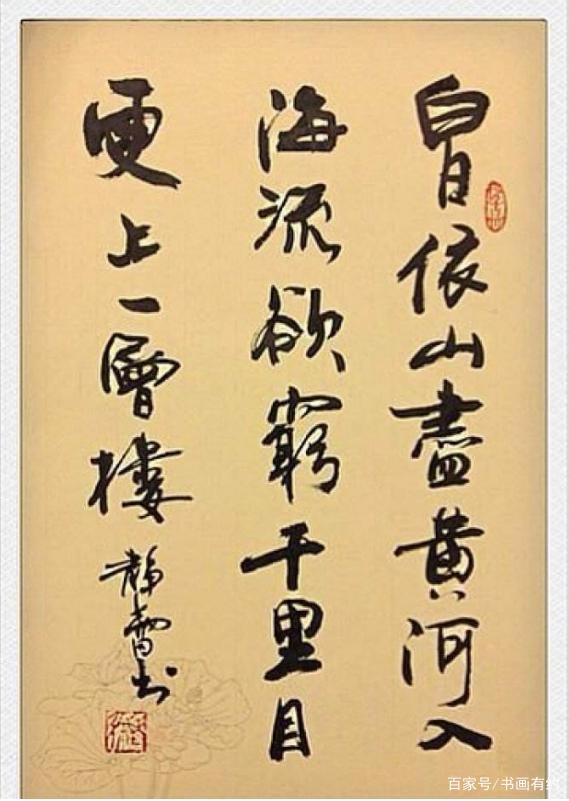 白日依山盡黄河入
海流欲窮千里目
更上一層樓
靜 书
百家号/书画有